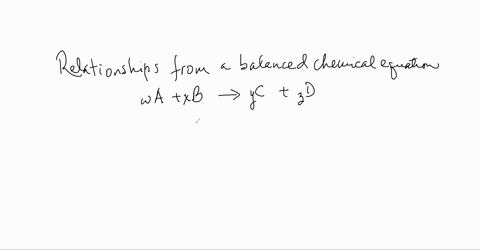 Relationships from a balanced chemical equation
wA + xB → yC + zD